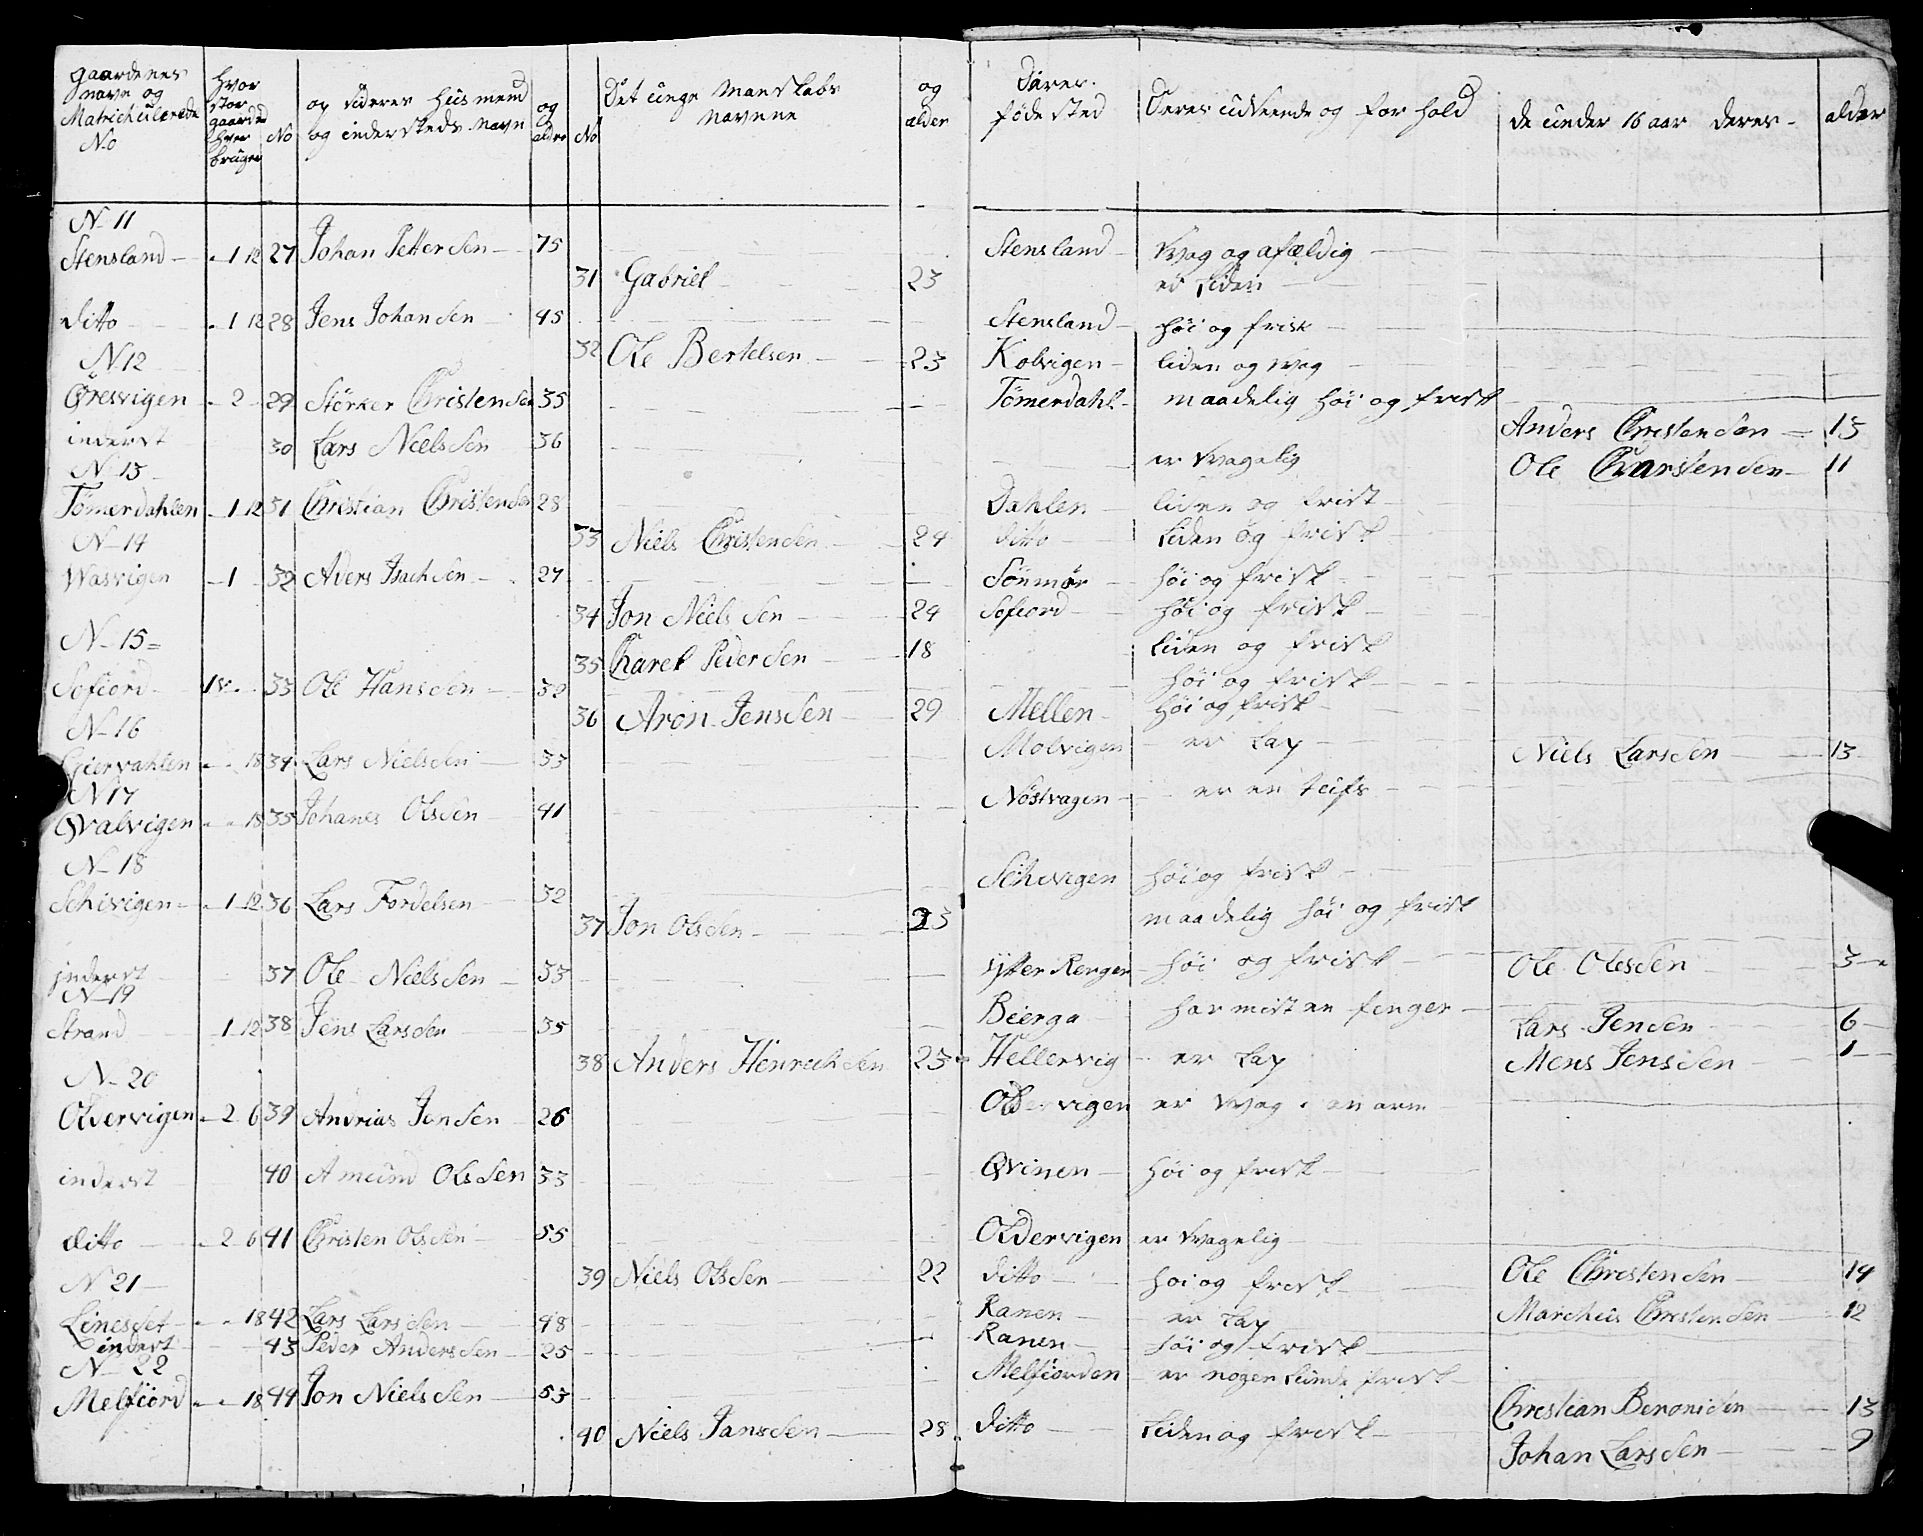 gaardenes navn og Matrichulerede No | hvor stor gaarded hver bruger | No | og sideres husmend og indersteds navn | og alder | No | Det unge Manskabs navnene | og alder | Deres føde sted | Deres udseende og for hold | de under 16 aar deres | alder
N 11
Stensland 1 12 27 Johan Petter Sen 75 Stensland Svag og afældig
31 Gabriel 23 er Liden
ditto 1 12 28 Jens Johan Sen 45 Stensland høi og frisk
N 12 32 Ole Bertelsen 23 Kolvigen liden og svag
Øresvigen 2 29 Størker Christen Sen 35 Tømerdahl maadelig høi og frisk
Anders Christen Sen 13
inderst 30 Lars Niels Sen 36 er svagelig Ole Charsten Sen 11
N 13
Tømerdahlen 1 12 31 Christian Christen Sen 28 Dahlen liden og frisk
N 14 33 Niels Christen Sen 24 ditto Liden og frisk
Wasvigen 1 32 Aders Isach Sen 27 Sønmør høi og frisk
34 Jon Niels Sen 24 Sofiord høi og frisk
N 15 35 Charel Peder Sen 18 Liden og frisk
Sofiord 1 v 33 Ole Hans Sen 32 høi og frisk
N 16 36 Aron Jens Sen 29 Mellen høi og frisk
Giervahlen 18 34 Lars Niels Sen 33 Molvigen er Lap Niels Lars Sen 13
N 17
Qvalvigen 18 35 Johanes Ols Sen 41 Nøstvagen er en
N 18
Schivigen 1 12 36 Lars Fordelsen 32 Schivigen høi og frisk
37 Jon Ols Sen 23 maadelig høi og frisk
inderst 37 Ole Niels Sen 33 Ytter Renger høi og frisk Ole Oles Sen 3
N 19
Strand 1 12 38 Jens Lars Sen 35 Bierga har mist en fenger Lars Jen Sen 6
38 Anders Hinrich Sen 23 Hellervig er Lap Mens Jens Sen 1
N 20
Oldervigen 2 6 39 Andrias Jen Sen 26 Oldervigen er svag i en arm
inderst 40 Amund Ols Sen 33 Qvinen høi og frisk
ditto 2 6 41 Christen Ols Sen 55 Oldervigen er svagelig
N 21 39 Niels Ols Sen 22 ditto høi og frisk Ole Christen Sen 14
Lineset 18 42 Lars Lars Sen 48 Ranen er Lap Marchus Christen Sen 12
inderst 43 Peder Anders Sen 25 Ranen høi og frisk
N 22
Melfiord 18 44 Jon Niels Sen 53 Melfiorden er nogen Lunde frisk
Christian Beronisen 13
40 Niels Jans Sen 28 ditto Liden og frisk
Johan Lars Sen 9